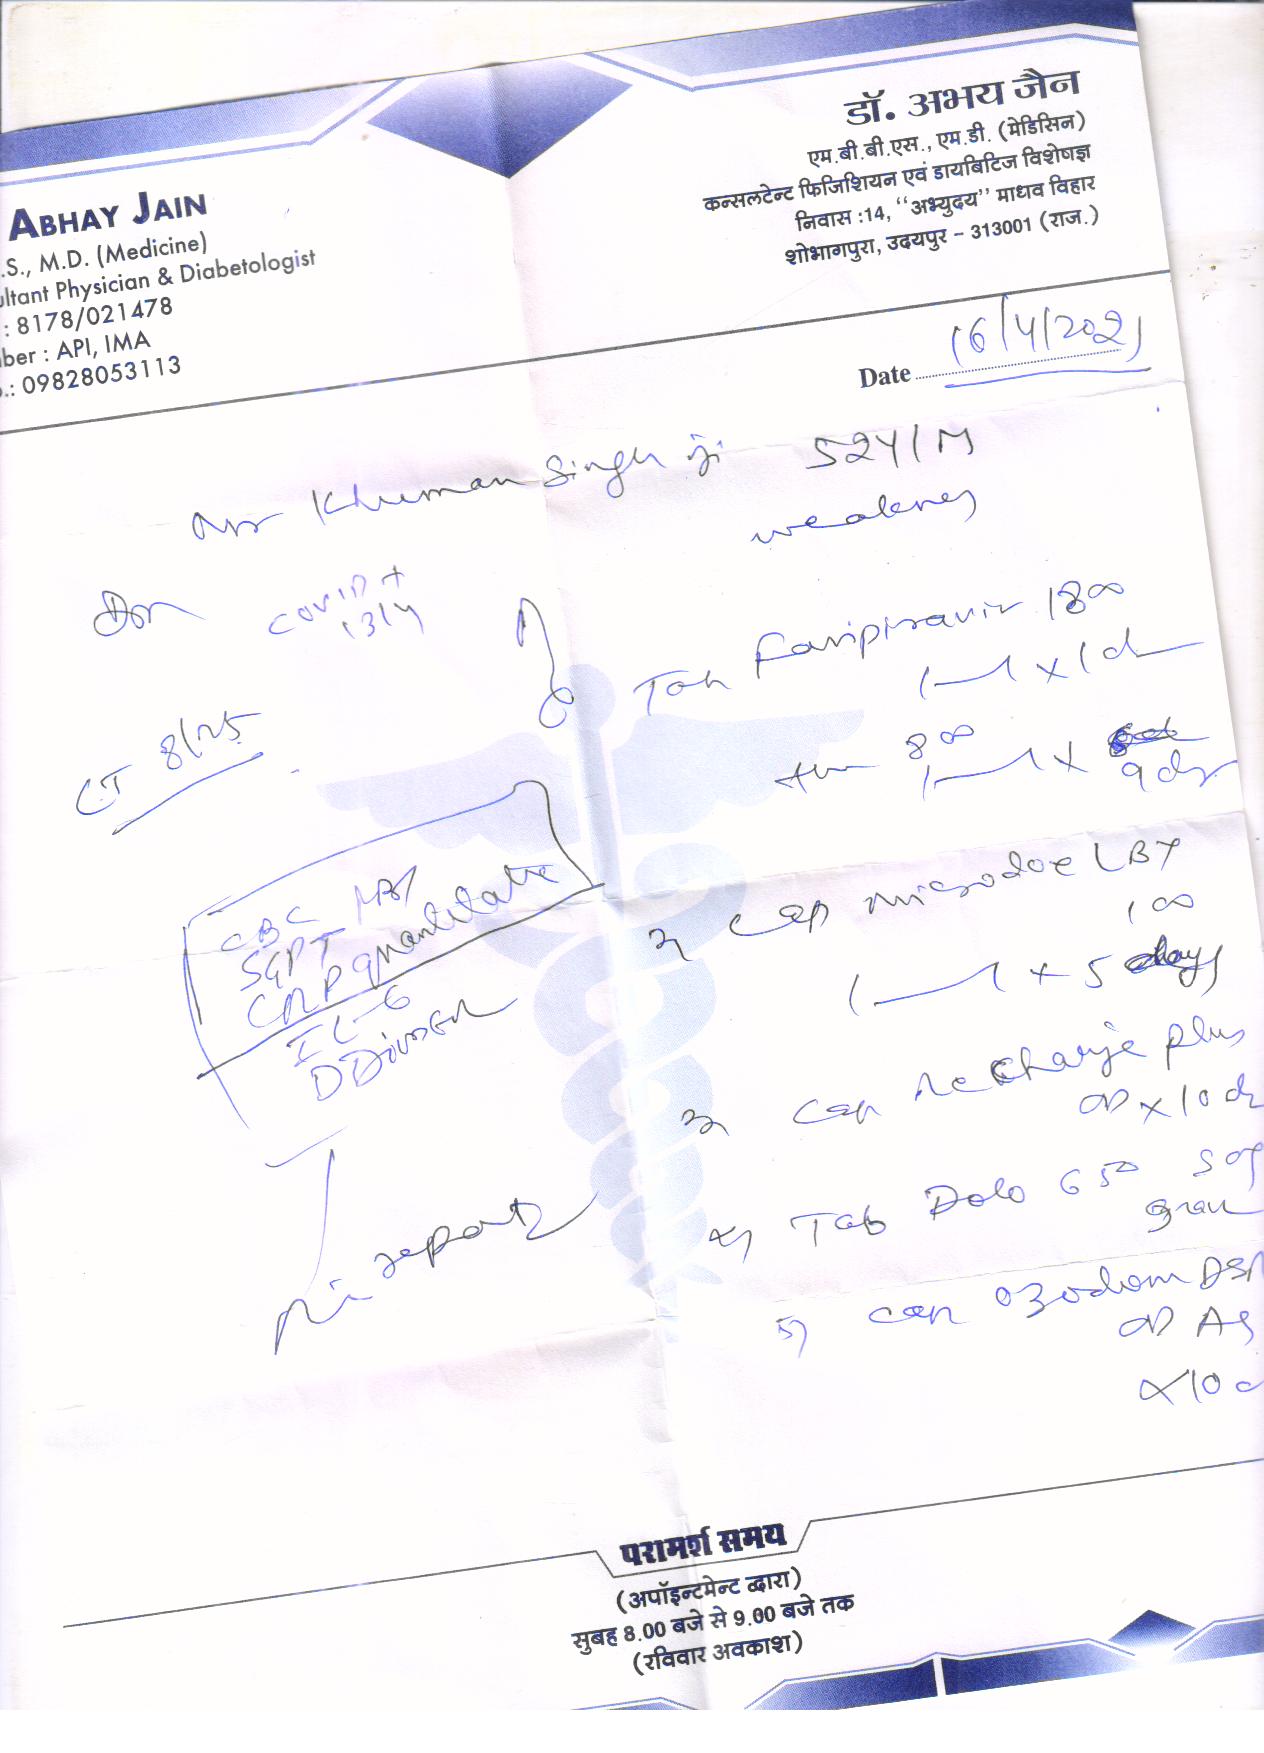 ABHAY JAIN
.S., M.D. (Medicine)
ultant Physician & Diabetologist
: 8178/021478
ber : API, IMA
.: 09828053113
डॉ. अभय जैन
एम.बी.बी.एस., एम.डी. (मेडिसिन)
कन्सलटेन्ट फिजिशियन एवं डायबिटिज विशेषज्ञ
निवास :14, "अभ्युदय" माधव विहार
शोभागपुरा, उदयपुर – 313001 (राज.)
Date 16/4/2021
Mr Khuman Singh ji 52Y/M
weakness
COVID +
13/4
CT 8/25
Tab Favipiravir 1800
1—1 x 1d
800
1—1 x 9 ds
CBC
SGPT
CRP quantitative
IL-6
D Dimer
Cap microdox LBX
100
1—1 x 5 days
Cap Recharge plus
OD x 10 d
Tab Dolo 650 SOS
5) Cap Ozodom DSR
OD
x 10 d
reports
परामर्श समय
(अपॉइन्टमेन्ट द्वारा)
सुबह 8.00 बजे से 9.00 बजे तक
(रविवार अवकाश)